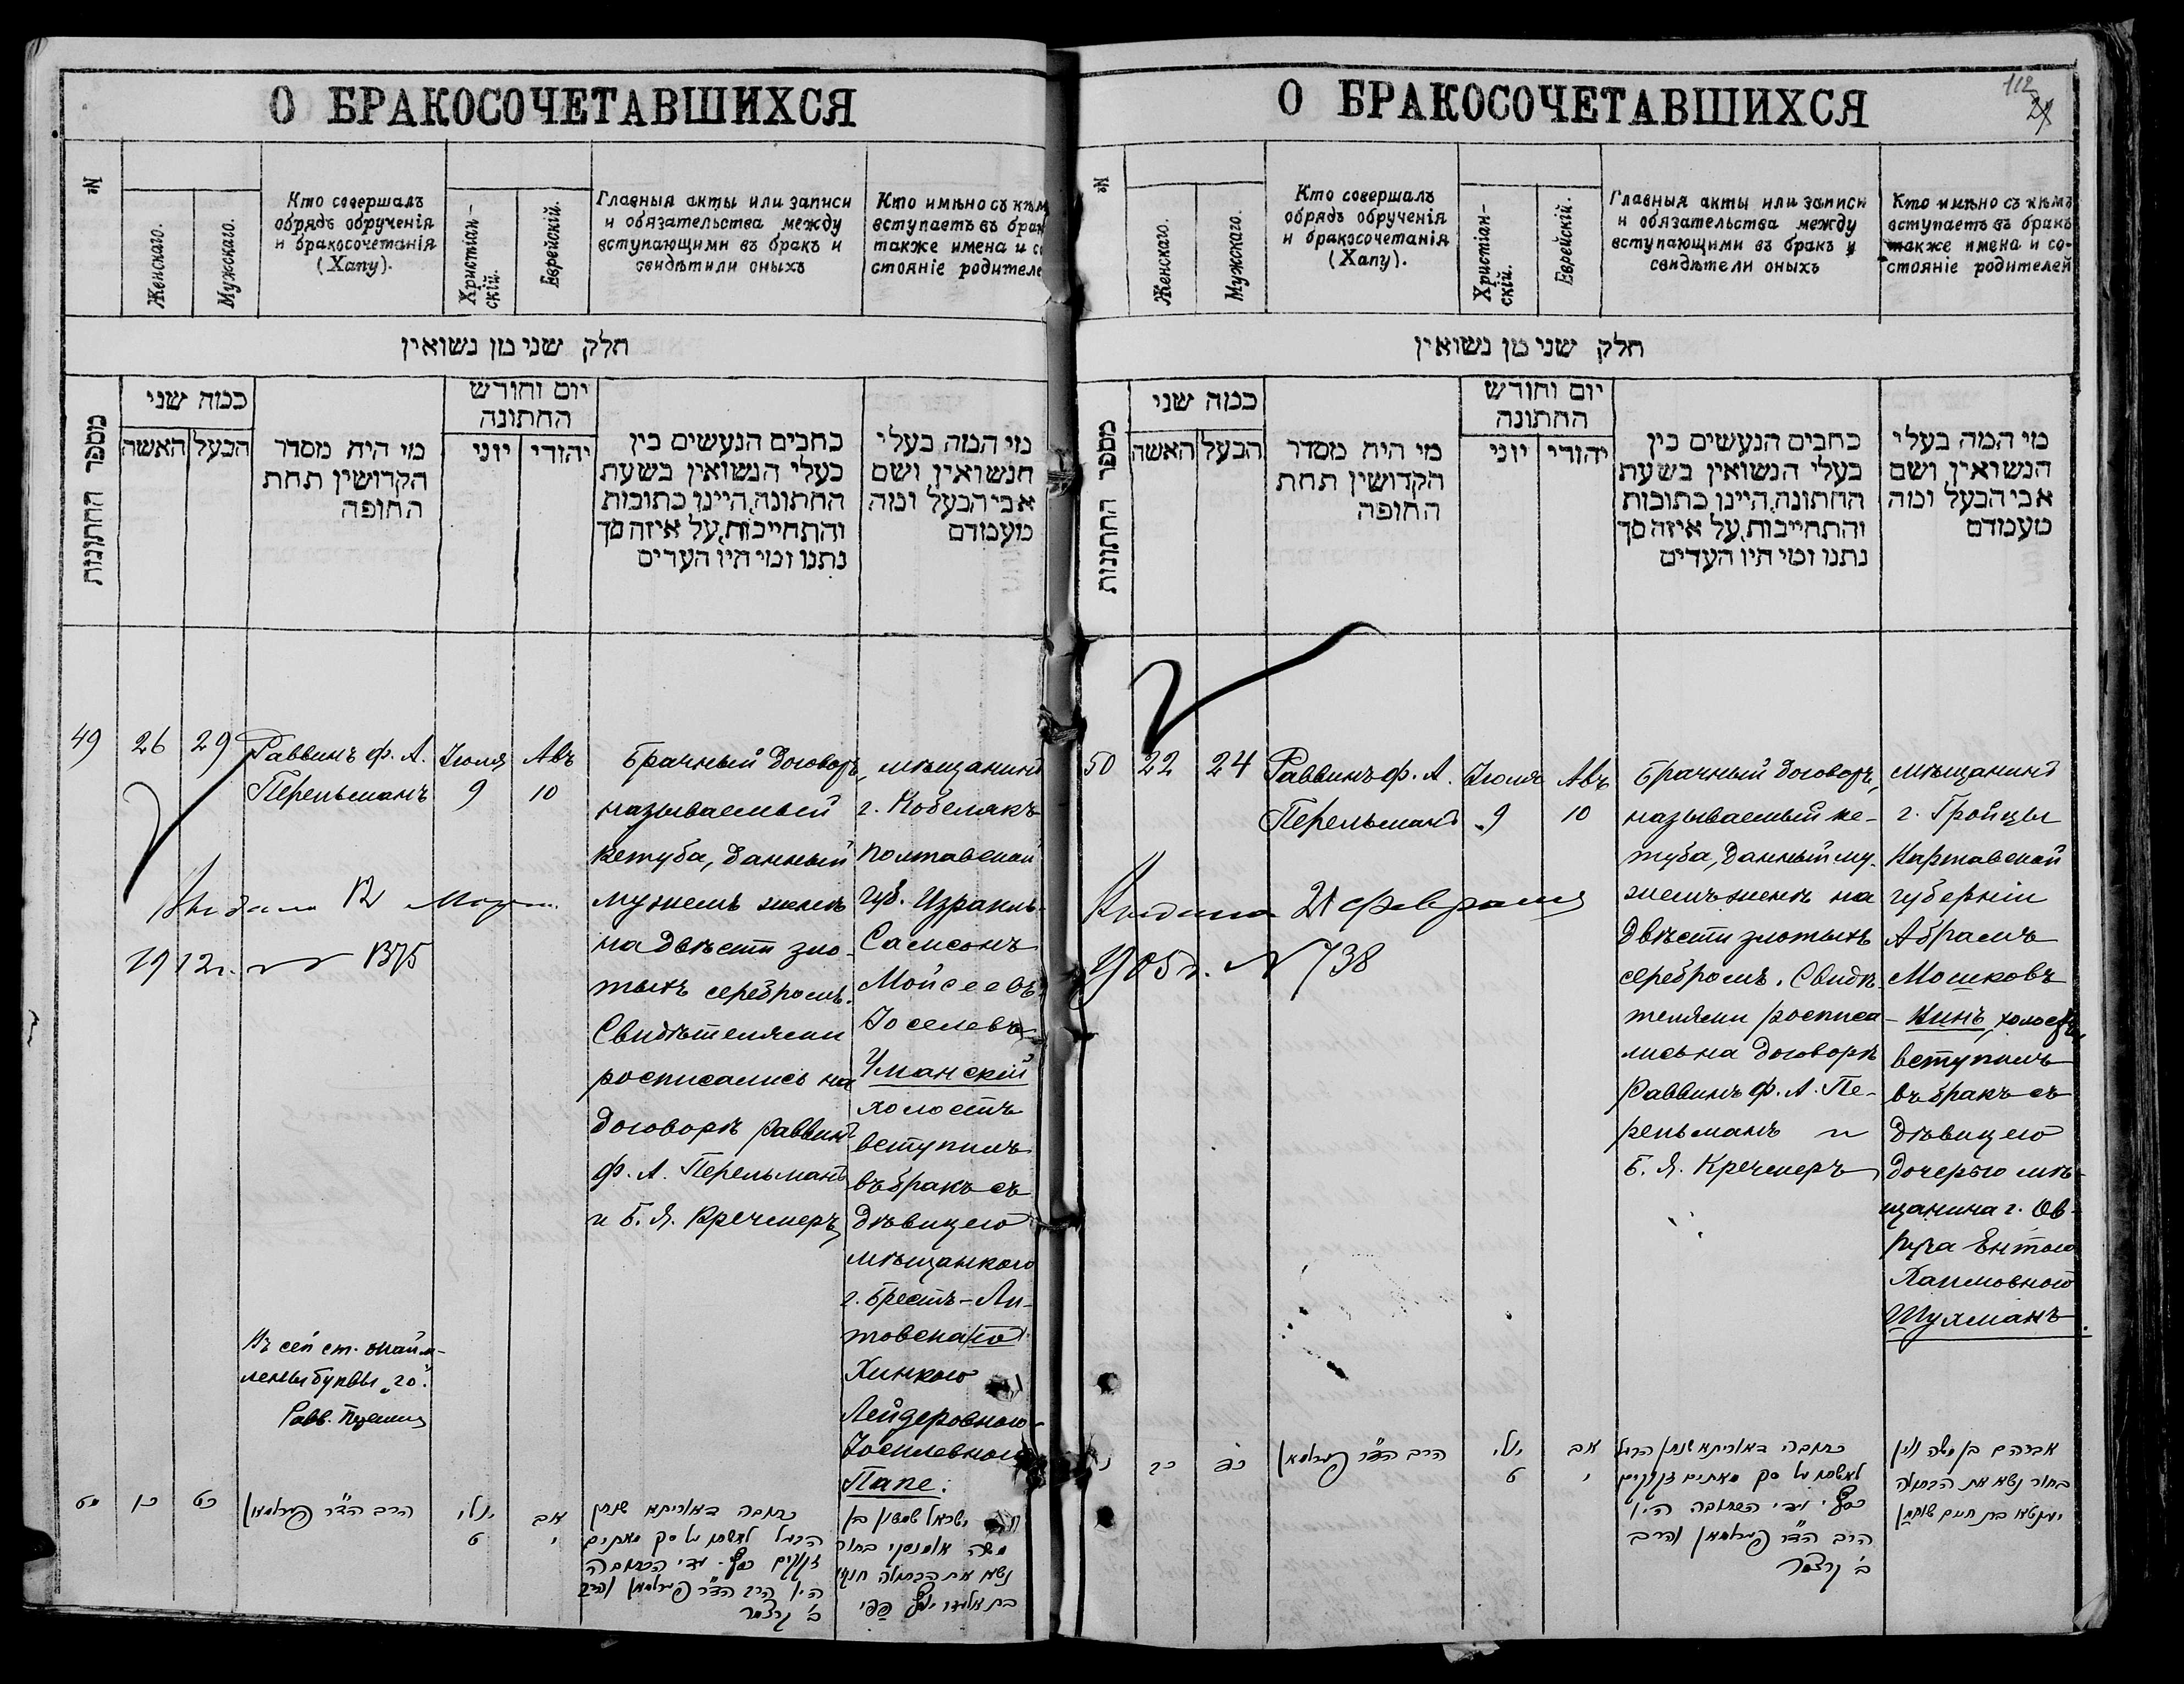 О БРАКОСОЧЕТАВШИХСЯ
№
Женскаго.
Мужскаго.
Кто совершалъ
обрядъ обрученія
и бракосочетанія
(Хапу).
Христіан-
скій.
Еврейскій.
Главныя акты или записи
и обязательства между
вступающими въ бракъ и
свидѣтили оныхъ
Кто имѣно съ кѣм
вступаетъ въ брак
также имена и с
стояніе родителе
חלק שני מן נשואין
מספר החתונות
כמה שני
האשה
הבעל
מי היה מסדר
הקדושין תחת
החופה
יום וחודש
החתונה
יוני
יהודי
כתבים הנעשים בין
בעלי הנשואין בשעת
החתונה, היינו כתובות
והתחייבות, על איזה סך
נתנו ומי היו העדים
מי המה בעלי
הנשואין ושם
אבי הבעל ומה
מעמדם
49
26
29
Раввинъ Ф. А.
Перельманъ
Іюля
9
Авъ
10
Брачный договоръ,
называемый
кетуба, данный
мужемъ женѣ
на двѣсти зло-
тыхъ серебромъ.
Свидѣтелями
росписались на
договорѣ раввинъ
Ф. А. Перельманъ
и Б. Я. Кречмеръ
мѣщанинъ
г. Кобелякъ
Полтавской
губ. Израиль-
Самсонъ
Мойсеевъ
Іоселевъ
Уманскій
холостъ
вступилъ
въ бракъ съ
дѣвицею
мѣщанкою
г. Брестъ-Ли-
товска го
Хинкою
Лейзеровною
Іоселевною
Папе.
12
1912г. 1375
Въ сей ст.
буквы „го".
Равв.
מט
כו
כט
הרב הד״ר פערלמאן
יולי
ט
אב
י
כתובה דאוריתא שנתן
הבעל לאשתו על סך מאתים
זקוקים כסף. עדי הכתובה
היו הרב הד״ר פערלמאן והרב
ב׳ קרצמר
ישראל שמשון בן
משה אומנסקי בחור
נשא את הבתולה חינקי
פפי
О БРАКОСОЧЕТАВШИХСЯ
112
№
Женскаго.
Мужскаго.
Кто совершалъ
обрядъ обрученія
и бракосочетанія
(Хапу).
Христіан-
скій.
Еврейскій.
Главныя акты или записи
и обязательства между
вступающими въ бракъ и
свидѣтели оныхъ
Кто имѣно съ кѣмъ
вступаетъ въ бракъ
также имена и со-
стояніе родителей
חלק שני מן נשואין
מספר החתונות
כמה שני
האשה
הבעל
מי היה מסדר
הקדושין תחת
החופה
יום וחודש
החתונה
יוני
יהודי
כתבים הנעשים בין
בעלי הנשואין בשעת
החתונה, היינו כתובות
והתחייבות, על איזה סך
נתנו ומי היו העדים
מי המה בעלי
הנשואין ושם
אבי הבעל ומה
מעמדם
50
22
24
Раввинъ Ф. А.
Перельманъ
Іюля
9
Авъ
10
Брачный договоръ,
называемый ке-
туба, данный му-
жемъ женѣ на
двѣсти злотыхъ
серебромъ. Свидѣ-
телями росписа-
лись на договорѣ
Раввинъ Ф. А. Пе-
рельманъ и
Б. Я. Кречмеръ
мѣщанинъ
г. Гройцы
Варшавской
губерніи
Абрамъ
Мошковъ
холостъ
вступилъ
въ бракъ съ
дѣвицею
дочерью мѣ-
щанина г. Ов-
руча Ентою
Хаимовною
Шухманъ.
21 февраля
905г. № 738
נ
כב
כד
הרב הד״ר פערלמאן
יולי
ט
אב
י
כתובה דאוריתא שנתן הבעל
לאשתו על סך מאתים זקוקים
כסף. עדי הכתובה היו
הרב הד״ר פערלמאן והרב
ב׳ קרצמר
אברהם בן משה
בחור נשא את הבתולה
בת חיים שוחמן